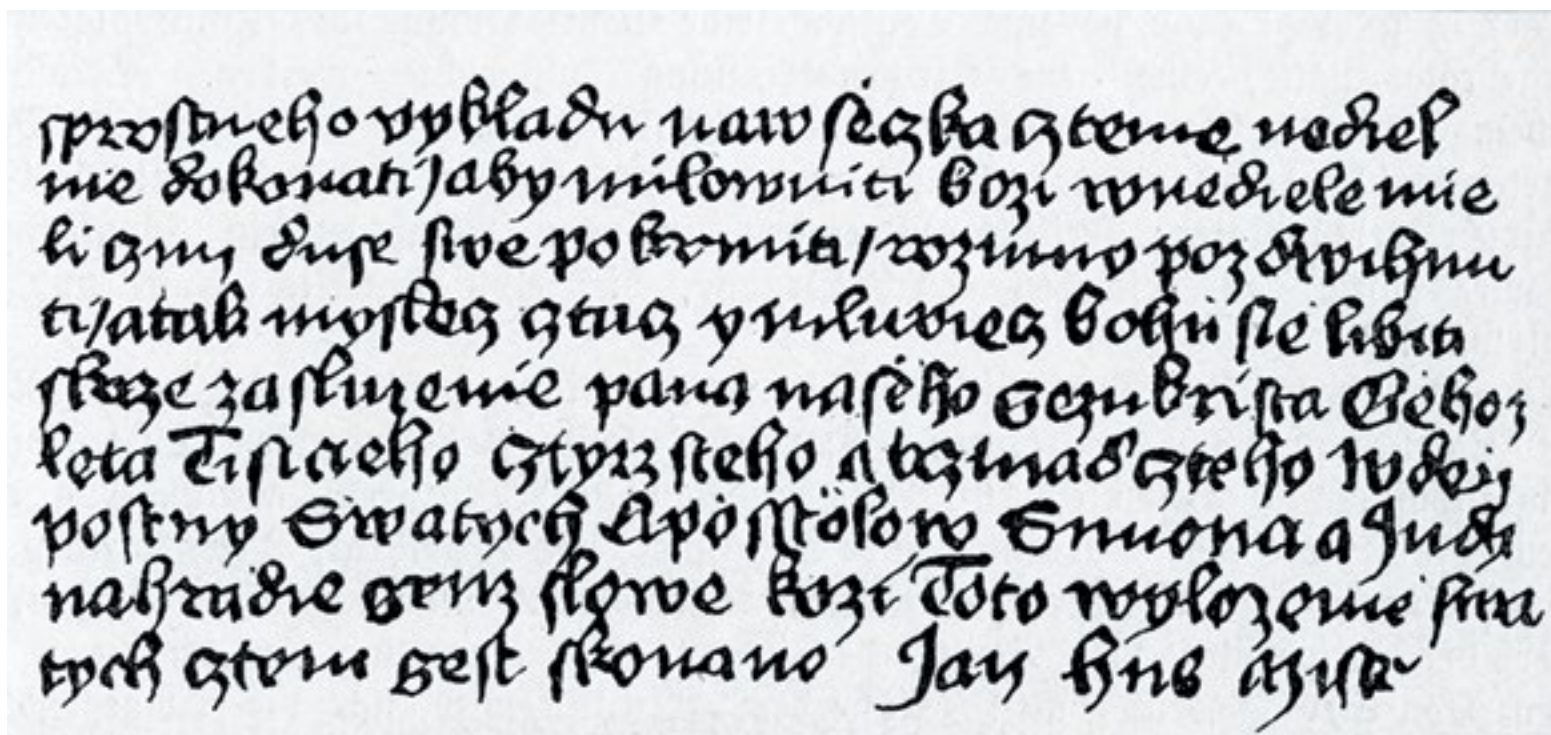 sprostneho vykladu naw ſeczka cztenie nediel
nie dokonati / aby milowniti bozi wnediele mie
li czim duſe ſwe pokrmiti / rozumno pozdwihnu
ti / atak myſlecz cztucz y mluwiecz bohu ſie libiti
ſkrze zaſluzenie pana naſeho Gezukriſta Geho
leta Tiſicieho cztyrzſteho a trzinadczteho wden
poſtny Swatych Apoſſtolow Simona a Judy
nahradie genz ſlowe kozi Toto wylozenie ſwa
tych cztení geſt ſkonano Jan hus